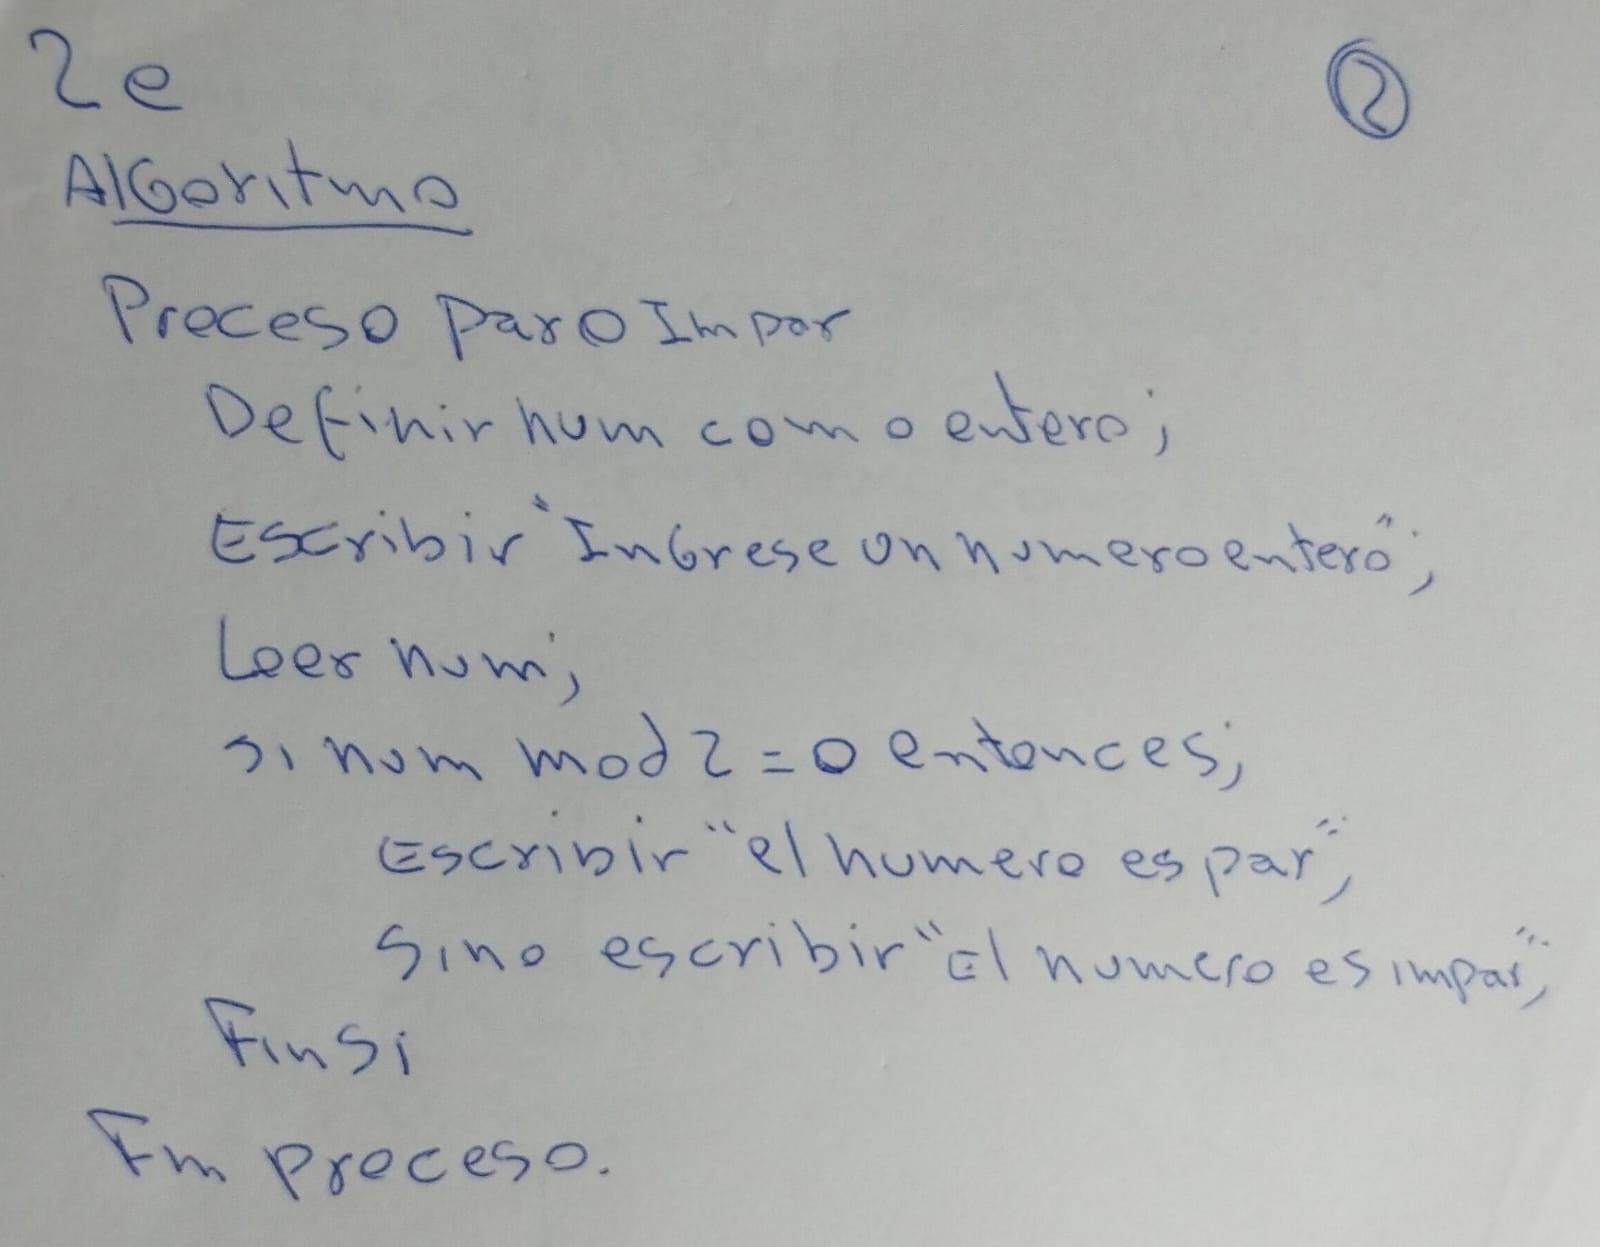 2e
②
Algoritmo
Proceso ParoImpar
Definir num como entero;
Escribir "Ingrese un numero entero";
Leer num;
si num mod 2 = 0 entonces;
Escribir "el numero es par",
Sino escribir "El numero es impar",
FinSi
Fin proceso.